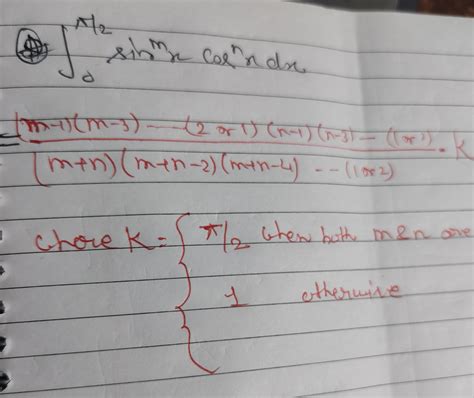 ∫₀^(π/2) sin^m x cos^n x dx
(m-1)(m-3) --- (2 or 1) (n-1)(n-3) -- (1 or 2) . K
(m+n)(m+n-2)(m+n-4) --- (1 or 2)
where K = { π/2 when both m & n are
1 otherwise